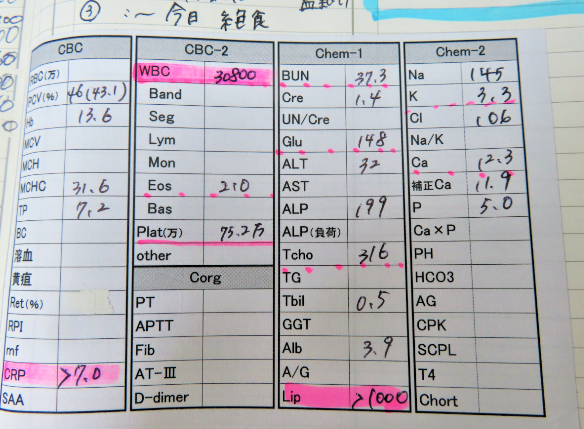 ③ :〜 今日 絶食
CBC
RBC(万)
PCV(%) 46(43.1)
Hb 13.6
MCV
MCH
MCHC 31.6
TP 7.2
BC
溶血
黄疸
Ret(%)
RPI
mf
CRP >7.0
SAA
CBC-2
WBC 30800
Band
Seg
Lym
Mon
Eos 210
Bas
Plat(万) 75.2万
other
Corg
PT
APTT
Fib
AT-Ⅲ
D-dimer
Chem-1
BUN 37.3
Cre 1.4
UN/Cre
Glu 148
ALT 32
AST
ALP 199
ALP(負荷)
Tcho 316
TG
Tbil 0.5
GGT
Alb 3.9
A/G
Lip >1000
Chem-2
Na 145
K 3.3
Cl 106
Na/K
Ca 12.3
補正Ca 11.9
P 5.0
Ca×P
PH
HCO3
AG
CPK
SCPL
T4
Chort